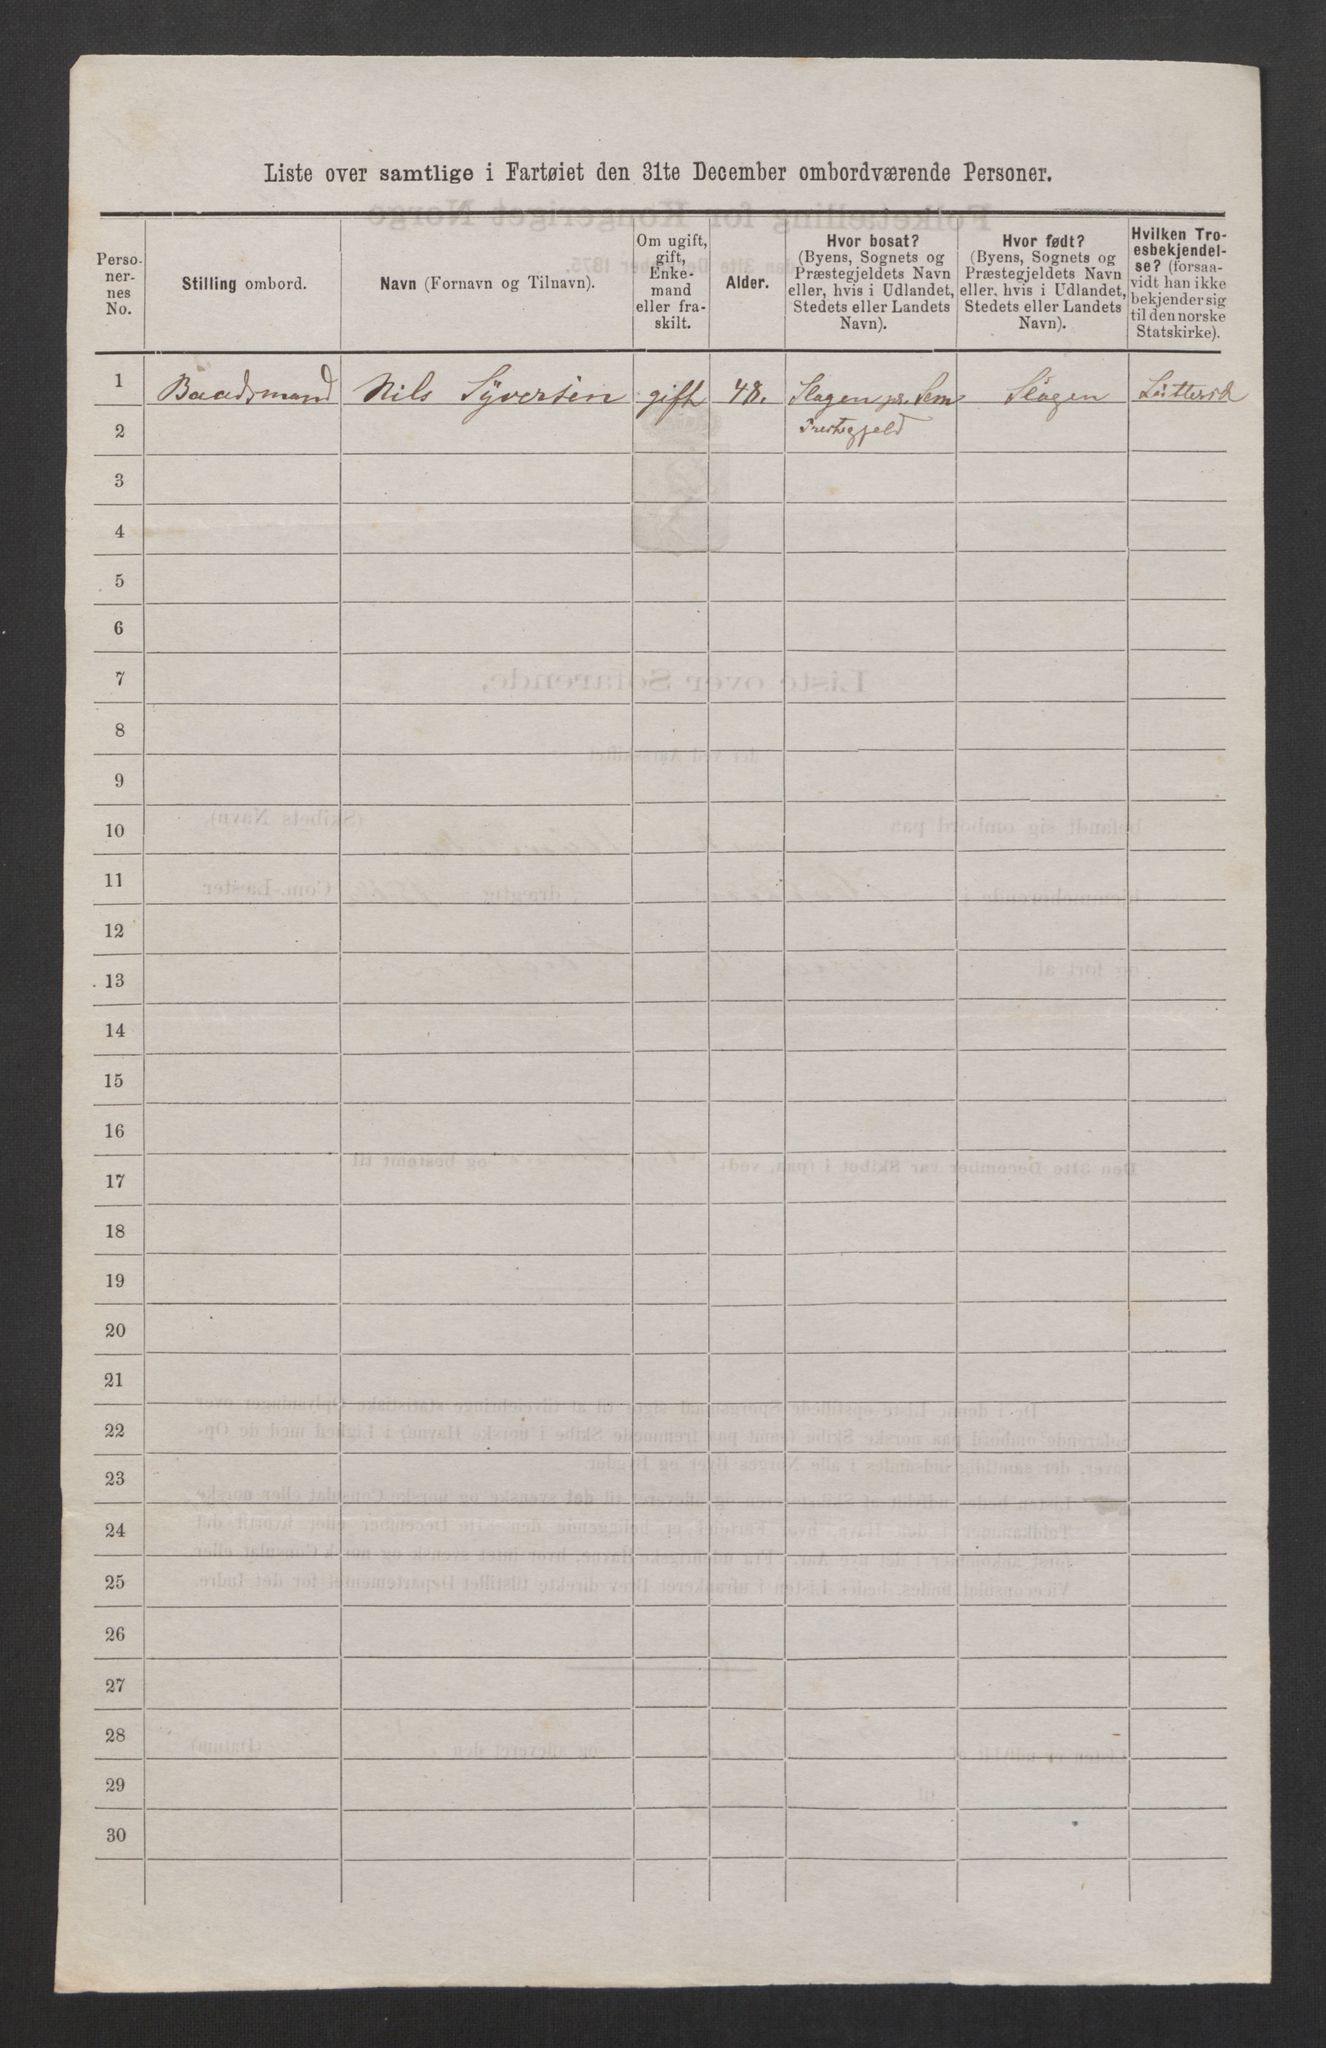 Liste over samtlige i Fartøiet den 31te December ombordværende Personer.
Perso-
ner-
nes
No.
Stilling ombord.
Navn (Fornavn og Tilnavn).
Om ugift,
gift,
Enke-
mand
eller fra-
skilt.
Alder.
Hvor bosat?
(Byens, Sognets og
Præstegjeldets Navn
eller, hvis i Udlandet,
Stedets eller Landets
Navn).
Hvor født?
(Byens, Sognets og
Præstegjeldets Navn
eller, hvis i Udlandet,
Stedets eller Landets
Navn).
Hvilken Tro-
esbekjendel-
se? (forsaa-
vidt han ikke
bekjender sig
til den norske
Statskirke).
1 Baadsmand Nils Syversen gift 48. Slagen pr. Sem Slagen
Prestegjeld
2
3
4
5
6
7
8
9
10
11
12
13
14
15
16
17
18
19
20
21
22
23
24
25
26
27
28
29
30